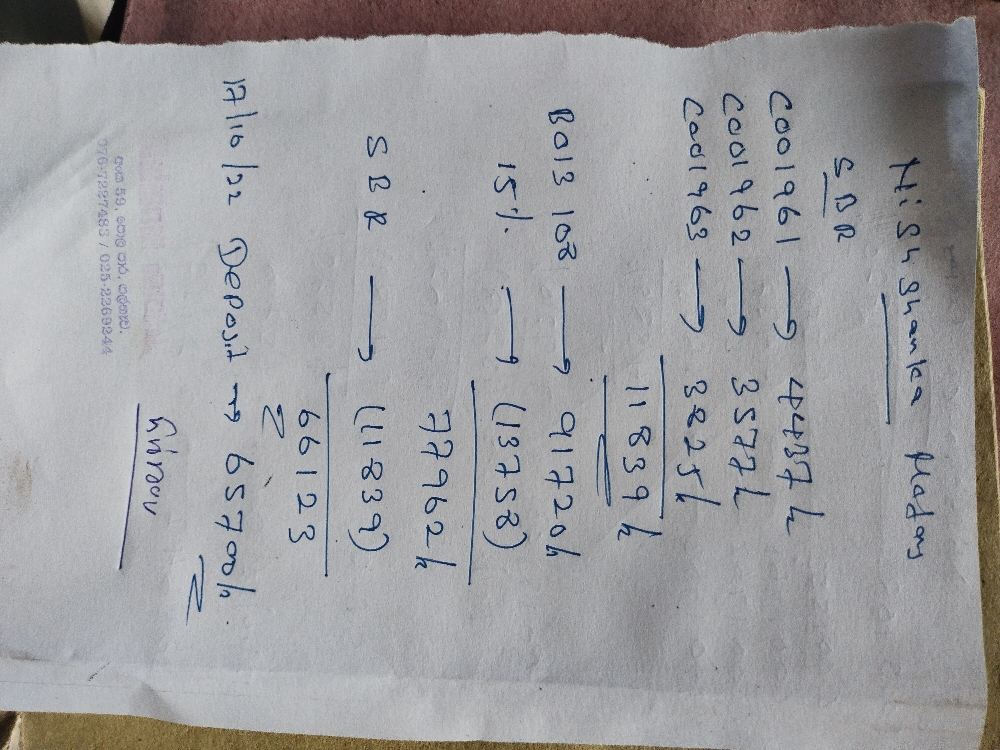 Nishshanka Madam
SBR
C001961 → 4437/-
C001962 → 3577/-
C001963 → 3825/-
11839/-
B013 108 → 91720/-
15% → (13758)
77962/-
SBR → (11839)
66123
17/10/22 Deposit → 65700/-
අංක 59,
076-7227483 / 025-2269244